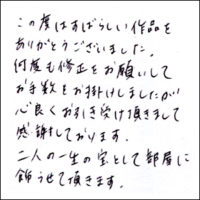 この度はすばらしい作品を
ありがとうございました。
何度も修正をお願いして
お手数をお掛けしましたが
心良くお引き受け頂きまして
感謝しております。
二人の一生の宝として部屋に
飾らせて頂きます。